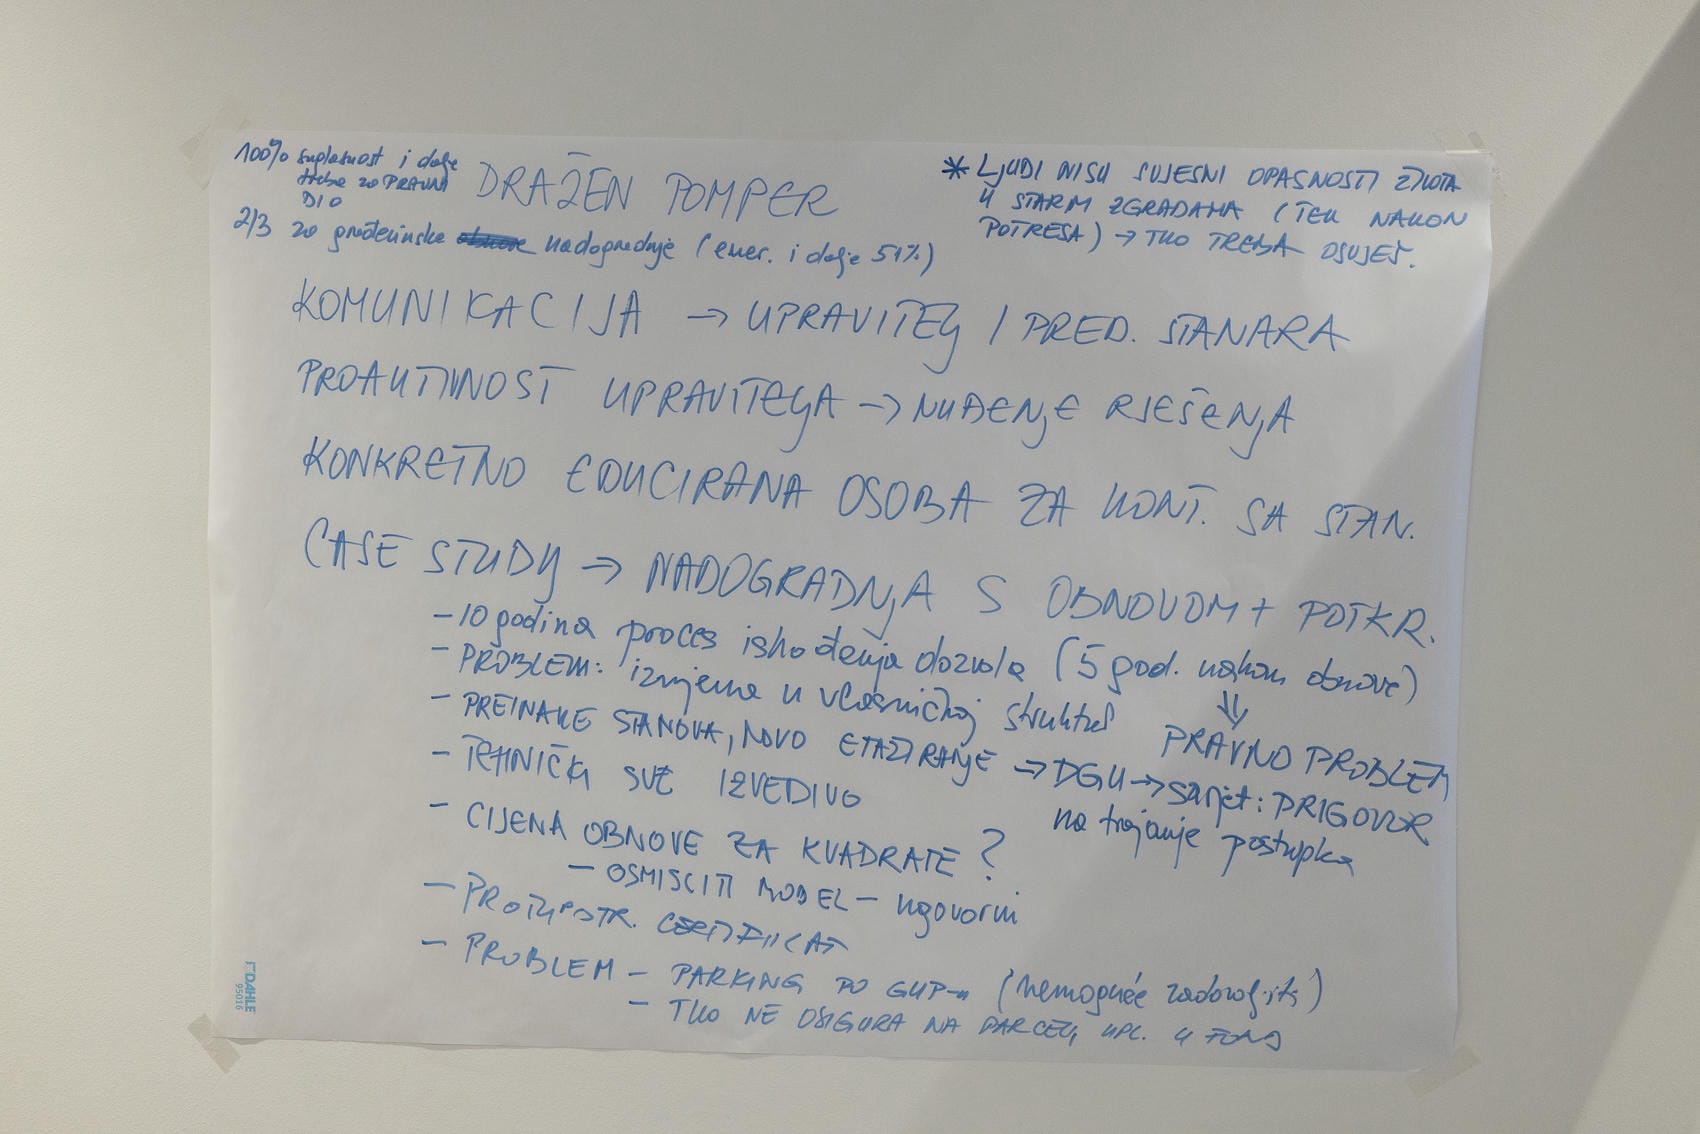 100% suglasnost i dalje
treba za PRAVNI
DIO
DRAŽEN POMPER
2/3 za građevinske nadogradnje (ener. i dalje 51%)
* LJUDI NISU SVJESNI OPASNOSTI ŽIVOTA
U STARIM ZGRADAMA (TEK NAKON
POTRESA) → TKO TREBA OSVJEŠ.
KOMUNIKACIJA → UPRAVITELJ / PRED. STANARA
PROAKTIVNOST UPRAVITELJA → NUĐENJE RJEŠENJA
KONKRETNO EDUCIRANA OSOBA ZA KONT. SA STAN.
CASE STUDY → NADOGRADNJA S OBNOVOM + POTKR.
- 10 godina proces ishođenja dozvola (5 god. nakon obnove)
- PROBLEM: izmjena u vlasničkoj strukturi
⇓
PRAVNO PROBLEM
- PREINAKE STANOVA, NOVO ETAŽIRANJE → DGU → savjet: PRIGOVOR
na trajanje postupka
- TEHNIČKI SVE IZVEDIVO
- CIJENA OBNOVE ZA KVADRATE?
- OSMISLITI MODEL - ugovorni
- PROTUPOTR. CERTIFIKAT
- PROBLEM - PARKING PO GUP-u (nemoguće zadovoljiti)
- TKO NE OSIGURA NA PARCELI, UPL. U FOND
DAHLE
95016